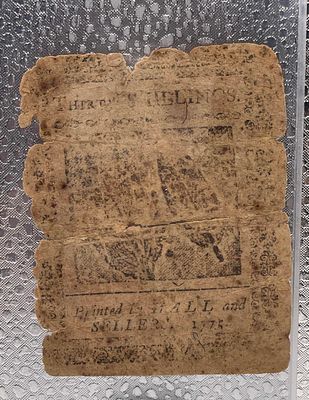 THIRTY SHILLINGS.
Printed by HALL and
SELLERS. 1775.